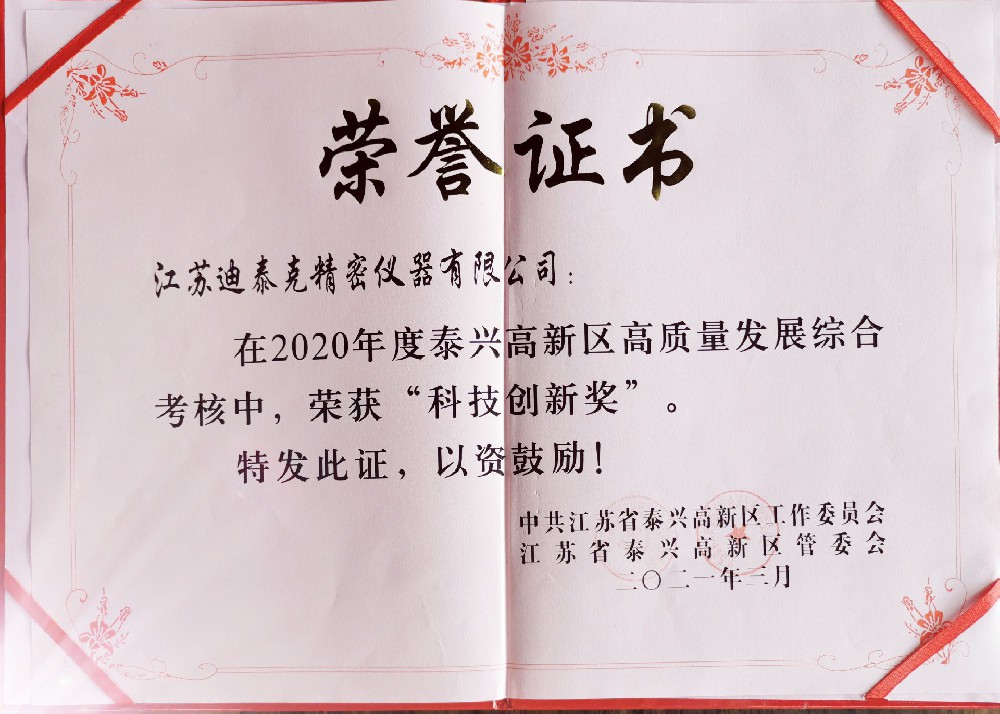 荣誉证书
江苏迪泰克精密仪器有限公司：
在2020年度泰兴高新区高质量发展综合
考核中，荣获“科技创新奖”。
特发此证，以资鼓励！
中共江苏省泰兴高新区工作委员会
江苏省泰兴高新区管委会
二〇二一年三月